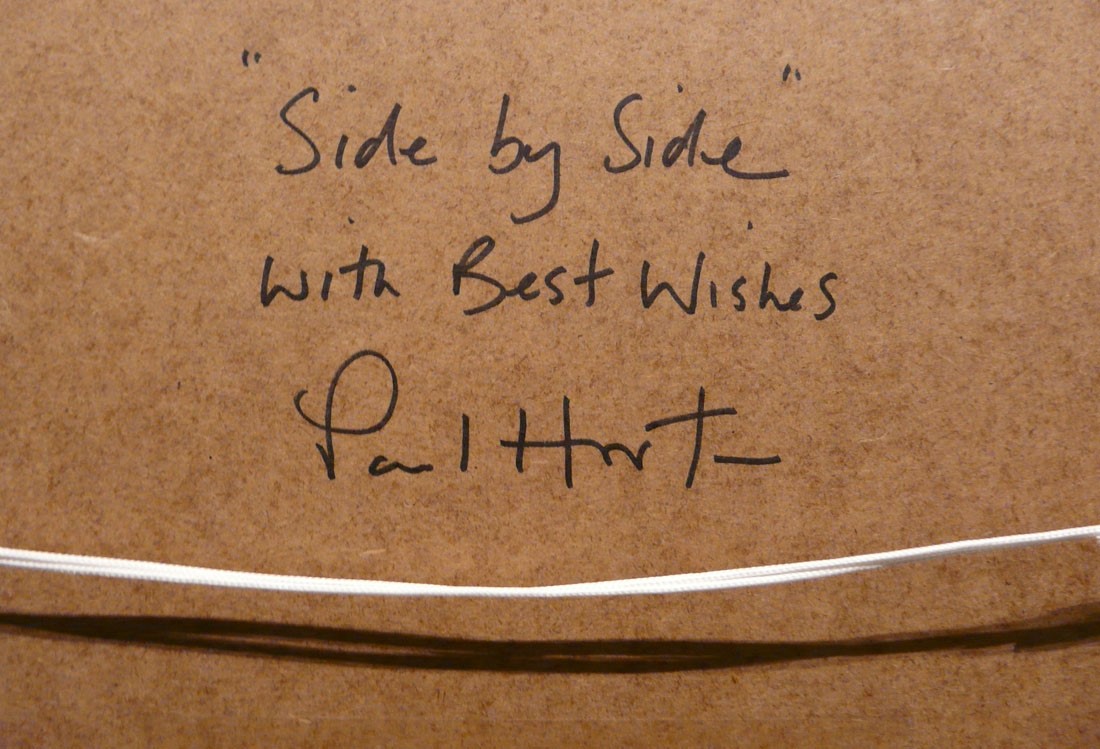 "Side by Side"
with Best Wishes
Paul Horton